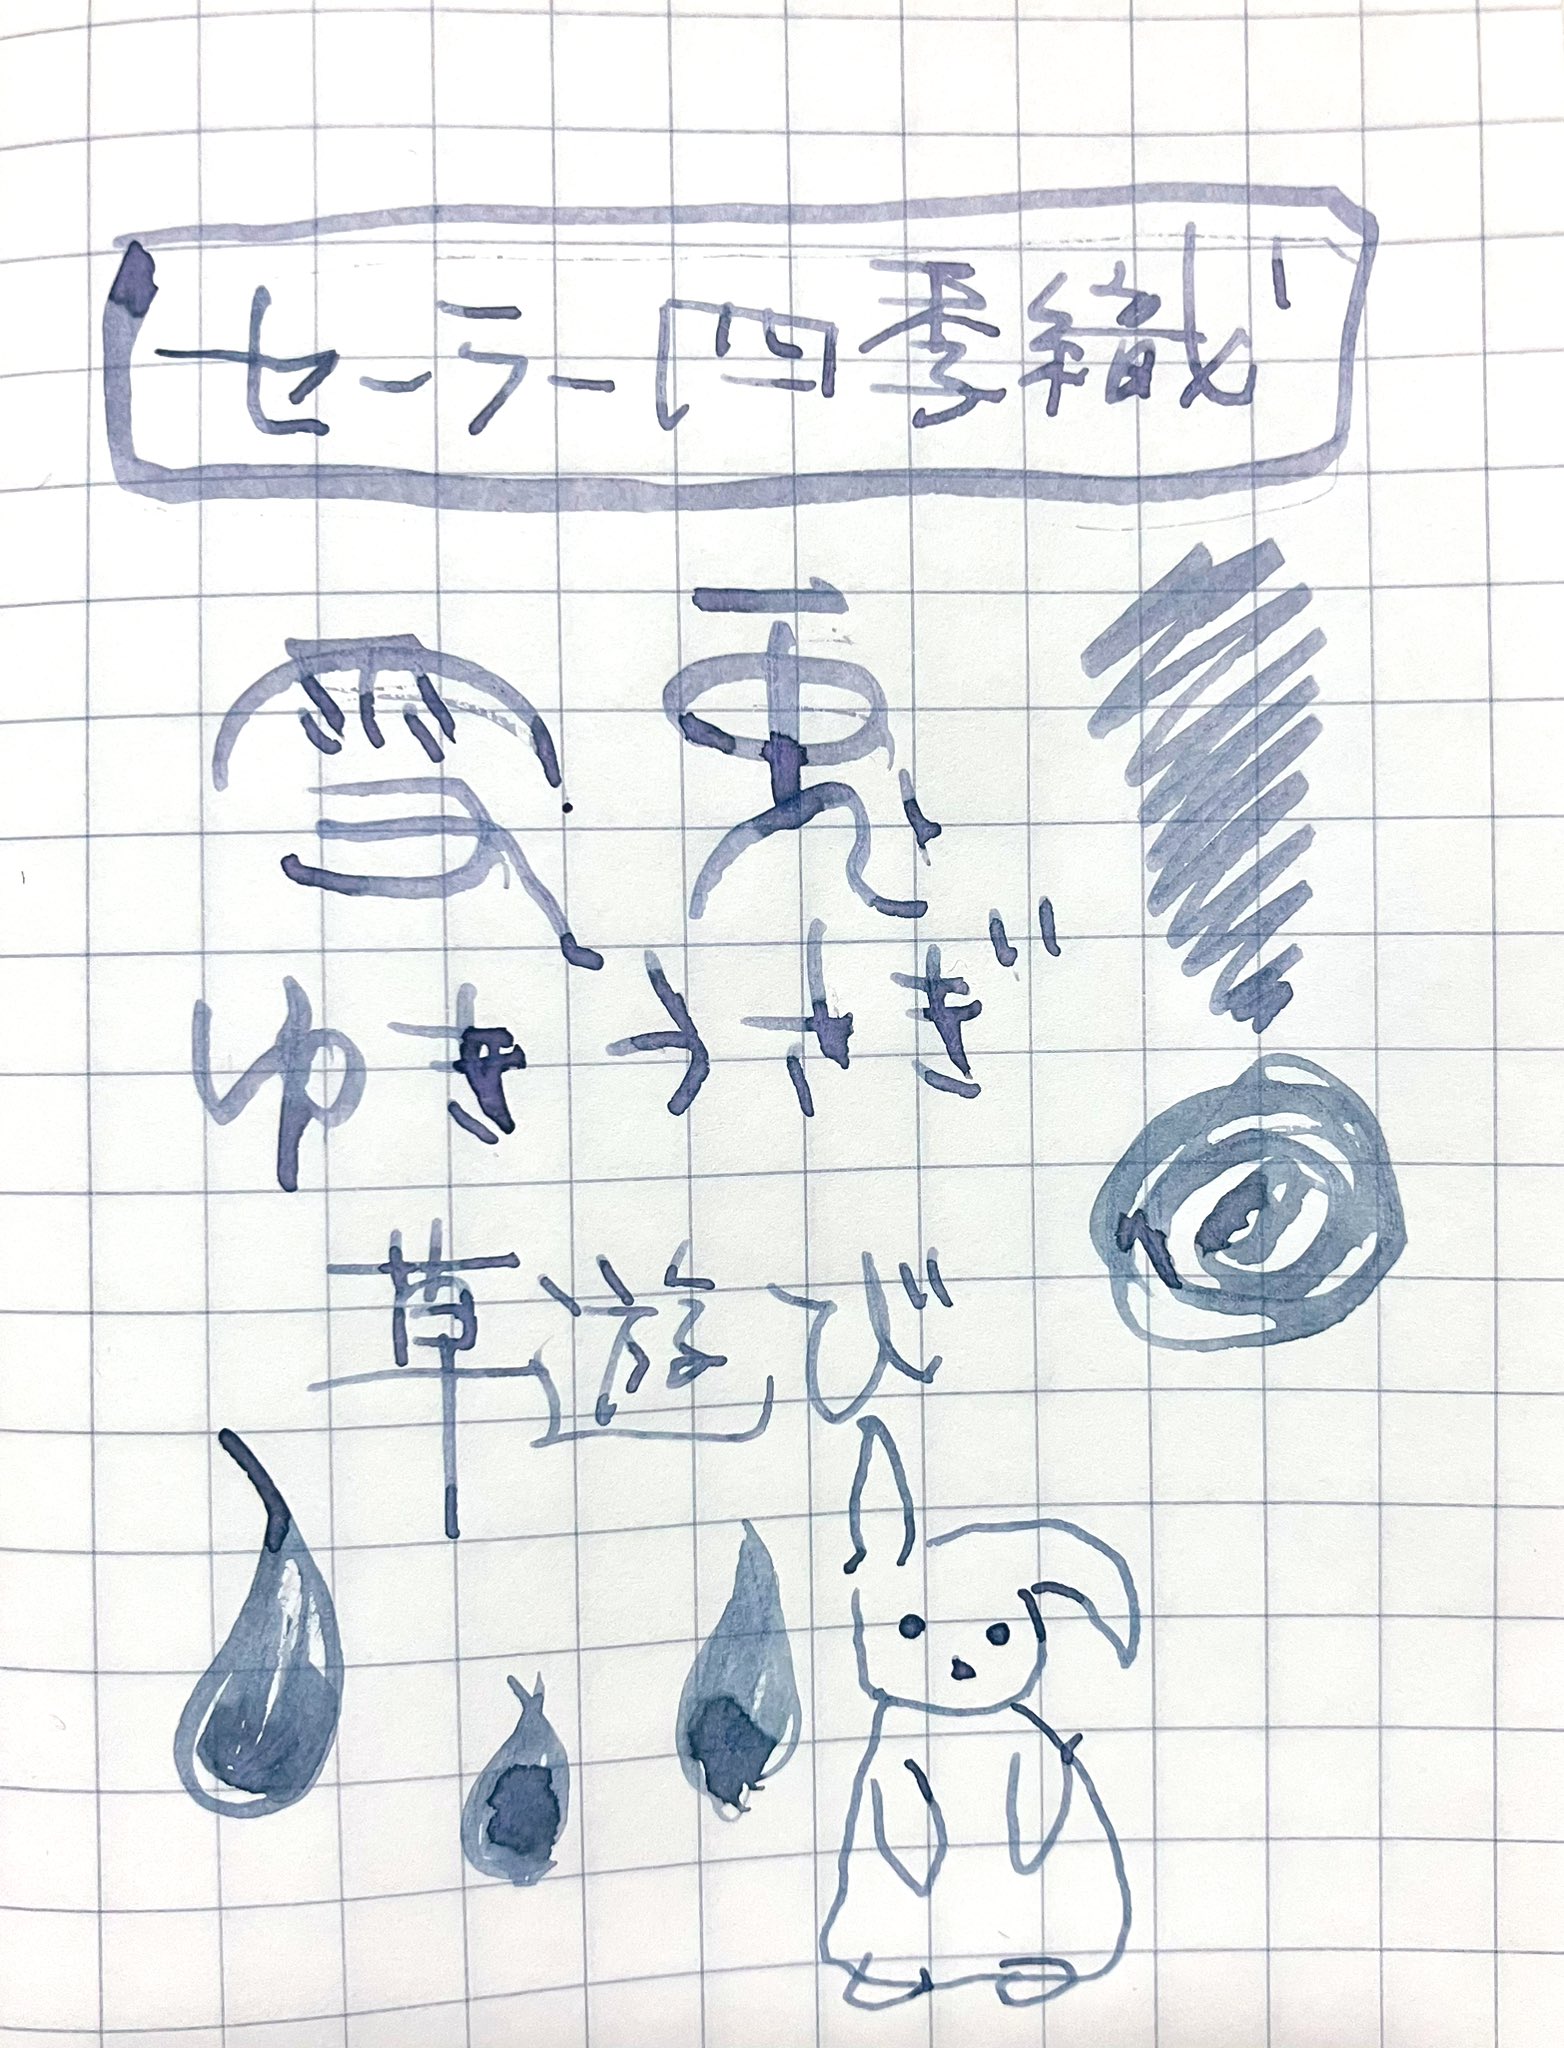 セーラー四季織
雪兎
ゆきうさぎ
草遊び